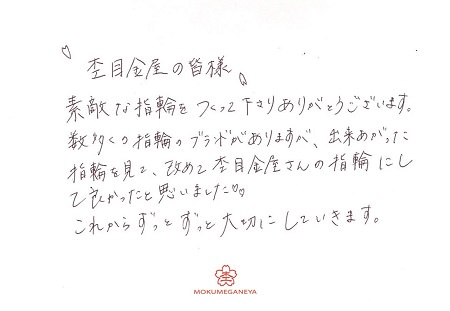 杢目金屋の皆様
素敵な指輪をつくって下さりありがとうございます。
数多くの指輪のブランドがありますが、出来あがった
指輪を見て、改めて杢目金屋さんの指輪にし
て良かったと思いました♡♡
これからずっとずっと大切にしていきます。
MOKUMEGANEYA